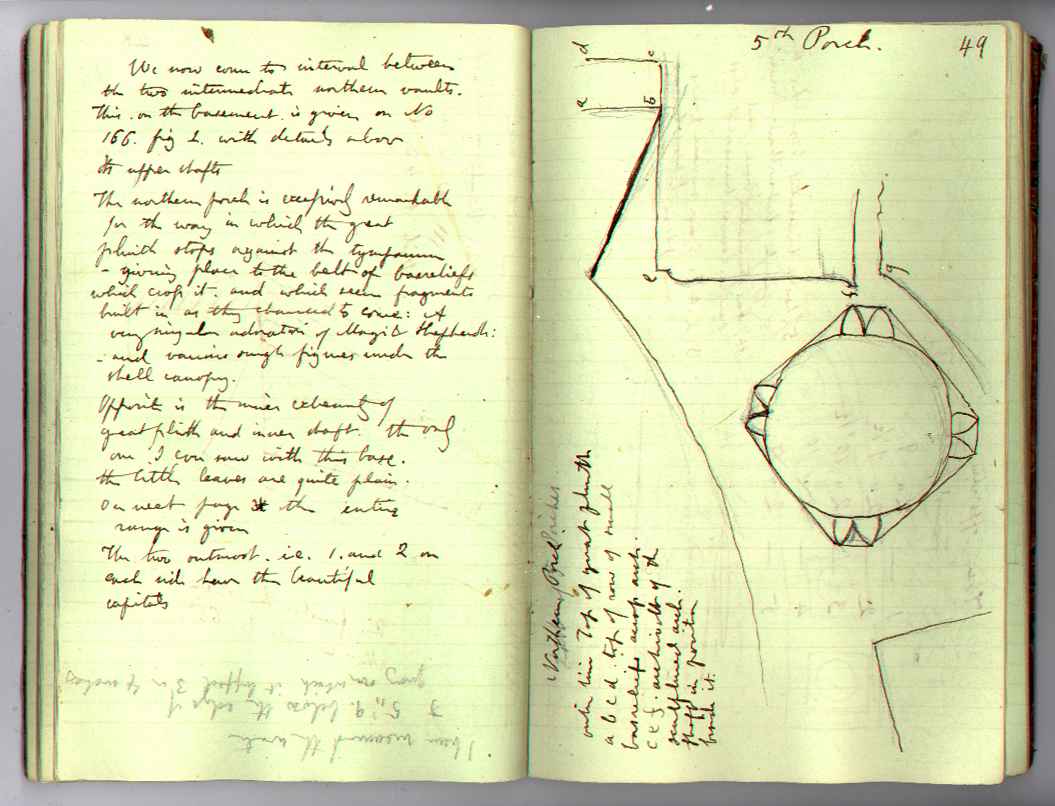 We now come to interval between
the two intermediate northern vaults.
This. on the basement. is given on No
166. fig 2. with details above
its upper shafts
The northern porch is exceedingly remarkable
for the way in which the great
plinth stops against the tympanum
- giving place to the belt of basreliefs
which crops it. and which seem fragments
built in as they chanced to come: A
very singular adoration of Magi & Shepherds:
- and various rough figures under the
shell canopy.
Opposite is the inner extremity of
great plinth and inner shaft. the only
one I ever saw with this base.
the little leaves are quite plain.
On next page the entire
range is given
The two outmost. i.e. 1. and 2 on
each side have the beautiful
capitals
I have measured the water
5,, 9. below the edge of
quay on which it lapped 3 in
5th Porch.
49
d
c
a
b
e
f
g
Northern Porch. Porches.
outer line Top of great plinth
a b c d. top of row of small
basreliefs across arch.
c e f: archivolt of the
sculptured arch.
shaft in position
from it.